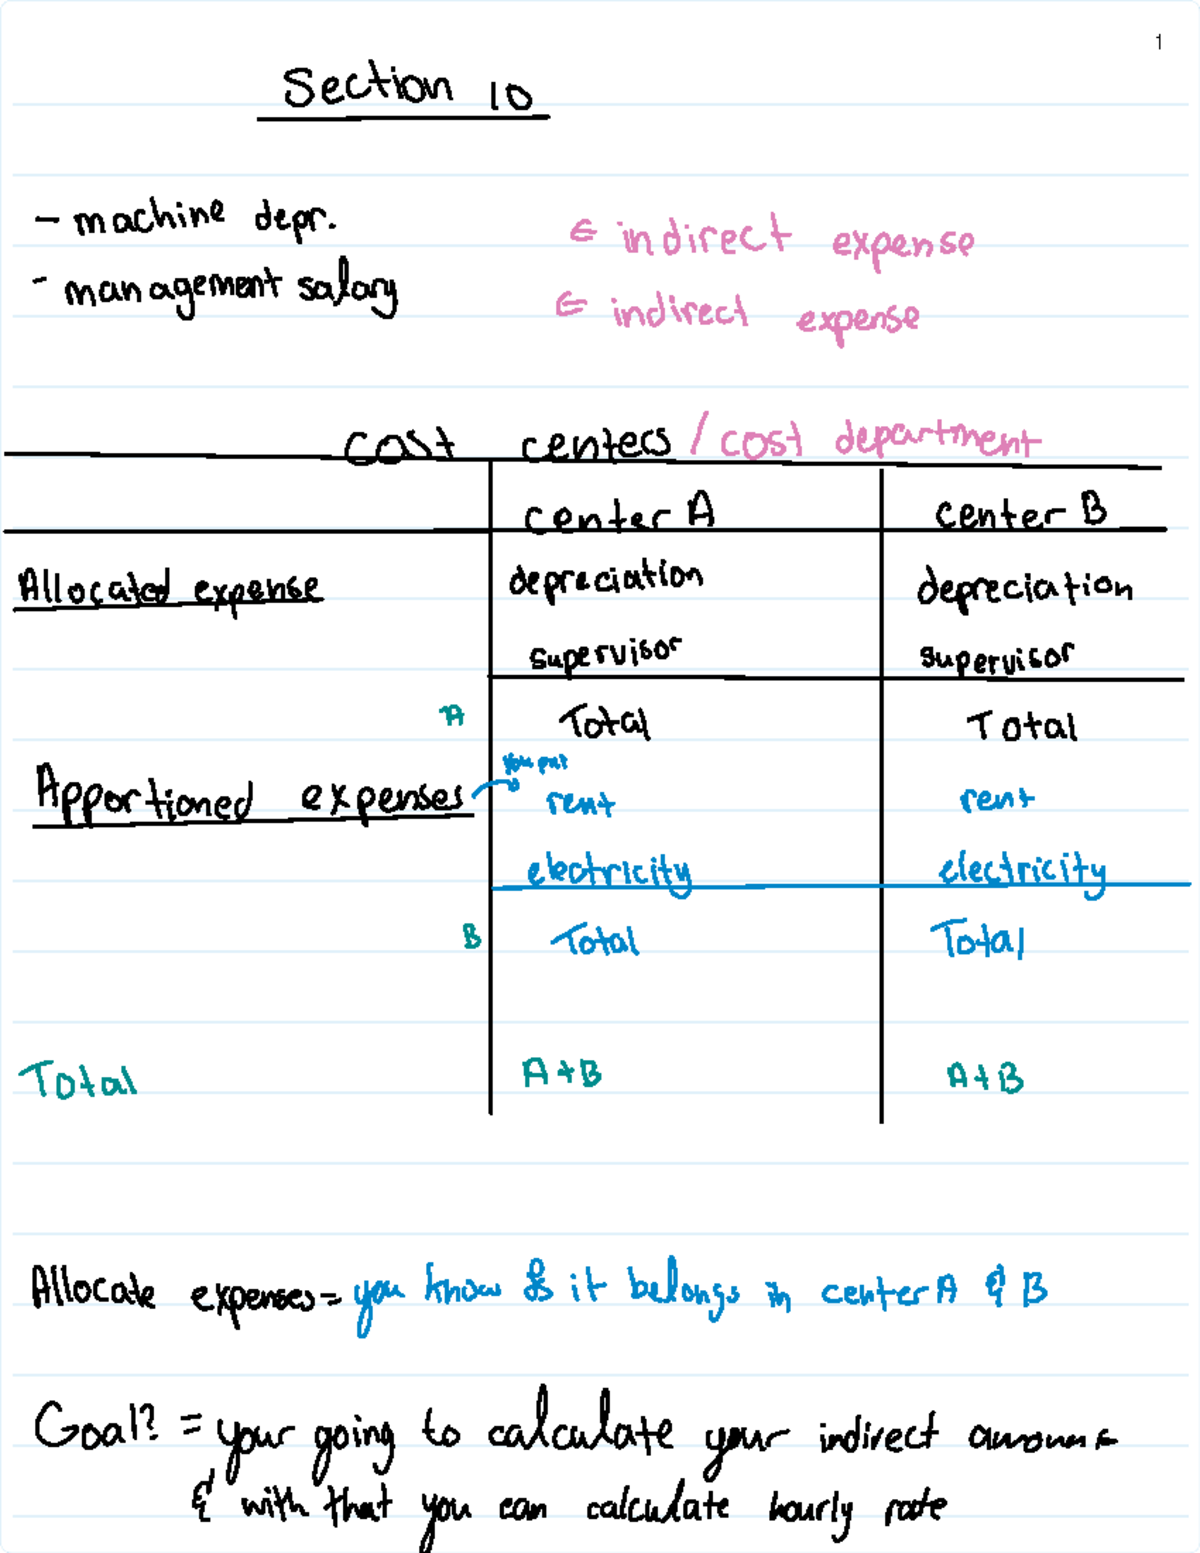 1
Section 10
- machine depr. ∈ indirect expense
- management salary ∈ indirect expense
cost centers / cost department
center A center B
Allocated expense depreciation depreciation
supervisor supervisor
A Total Total
you put
Apportioned expenses rent rent
electricity electricity
B Total Total
Total A+B A+B
Allocate expenses = you know it belongs in center A & B
Goal? = your going to calculate your indirect
& with that you can calculate hourly rate